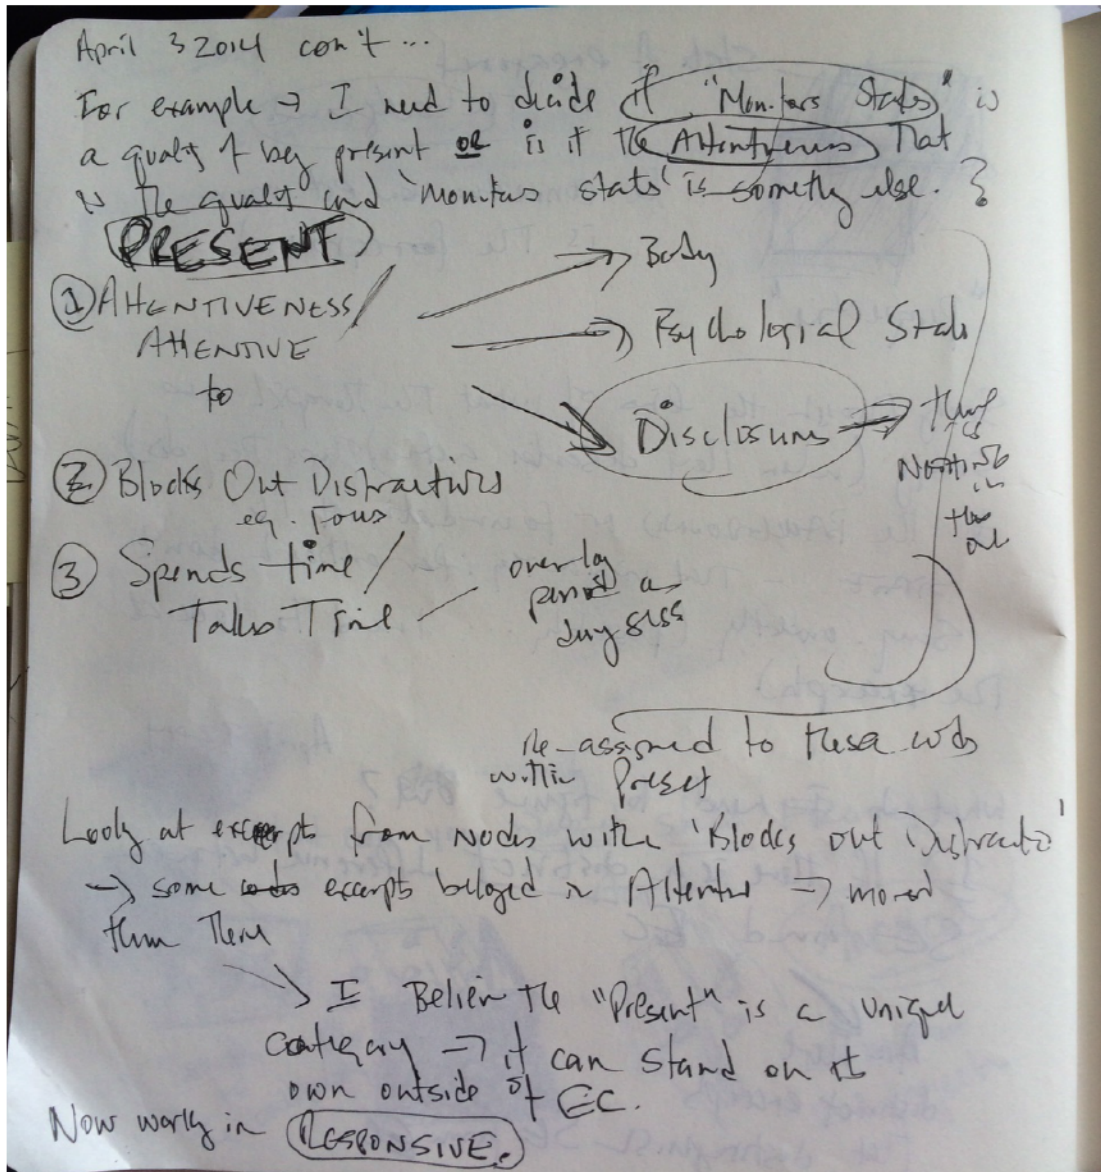 April 3 2014 con't ...
For example → I need to decide if "Monitors States" is
a quality of being present OR is it the Attentiveness that
is the quality and 'monitors stats' is something else. ?
PRESENT
① ATTENTIVENESS/
ATTENTIVE
to
→ Body
→ Psychological State
→ Disclosures →
NOTHING
in
this
one
② Blocks Out Distractions
eg. Focus
③ Spends time/
Takes Time
overlap
Re-assigned to these codes
within Present
Look at excerpts from nodes within 'Blocks out Distractio'
→ some codes excerpts belonged in Attentive → moved
them there
→ I Believe the "Present" is a unique
category → it can stand on its
own outside of EC.
Now working in RESPONSIVE.